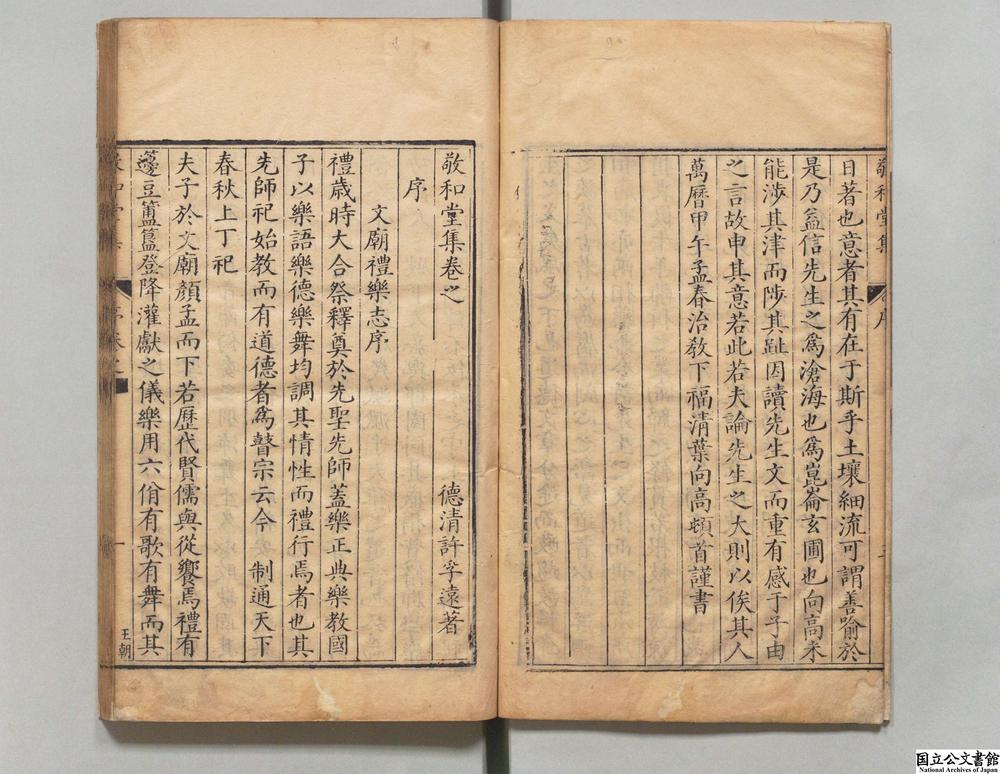 日者也意者其有在于斯乎土壤細流可謂善喻於
是乃益信先生之爲滄海也爲崑崙玄圃也向高未
能涉其津而陟其趾因讀先生文而重有感于子由
之言故申其意若此若夫論先生之大則以俟其人
萬曆甲午孟春治教下福清葉向高頓首謹書
敬和堂集
敬和堂集卷之
德清許孚遠著
序
文廟禮樂志序
禮歲時大合祭釋奠於先聖先師蓋樂正典樂教國
子以樂語樂德樂舞均調其情性而禮行焉者也其
先師祀始教而有道德者爲瞽宗云今 制通天下
春秋上丁祀
夫子於文廟顏孟而下若歷代賢儒與從饗焉禮有
籩豆簠簋登降灌獻之儀樂用六佾有歌有舞而其
一
王朝
国立公文書館
National Archives of Japan